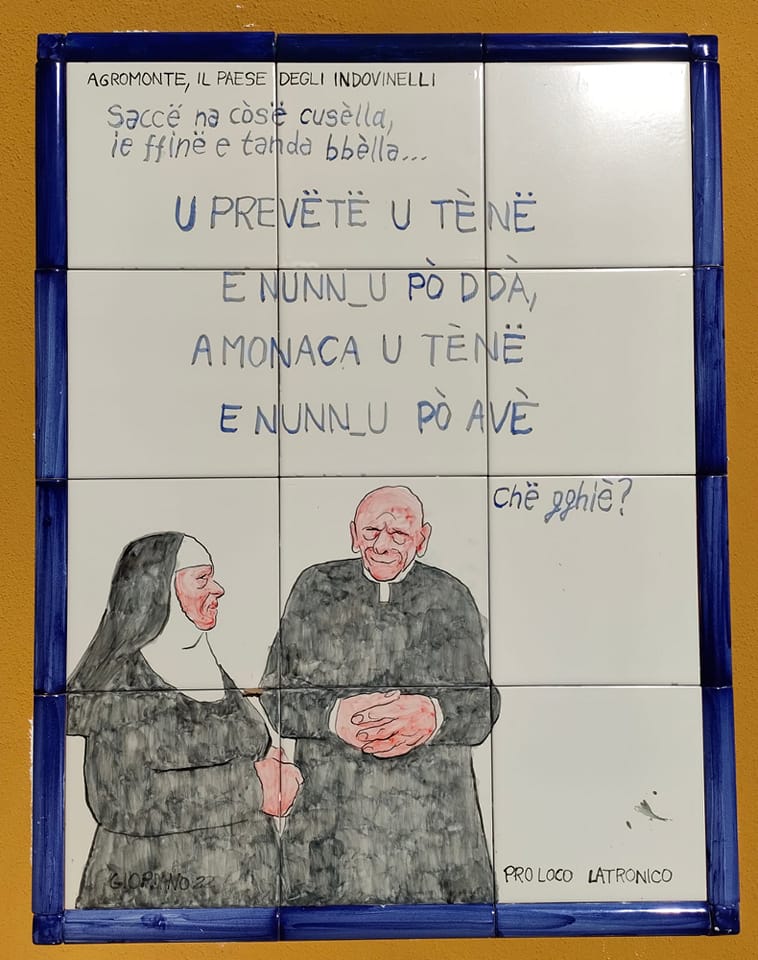 AGROMONTE, IL PAESE DEGLI INDOVINELLI
Saccë na còsë cusèlla,
ie ffinë e tanda bbèlla...
U PREVËTË U TÈNË
E NUNN_U PÒ DDÀ,
A MONACA U TÈNË
E NUNN_U PÒ AVÈ
Chë gghiè?
GIORDANO 22
PRO LOCO LATRONICO